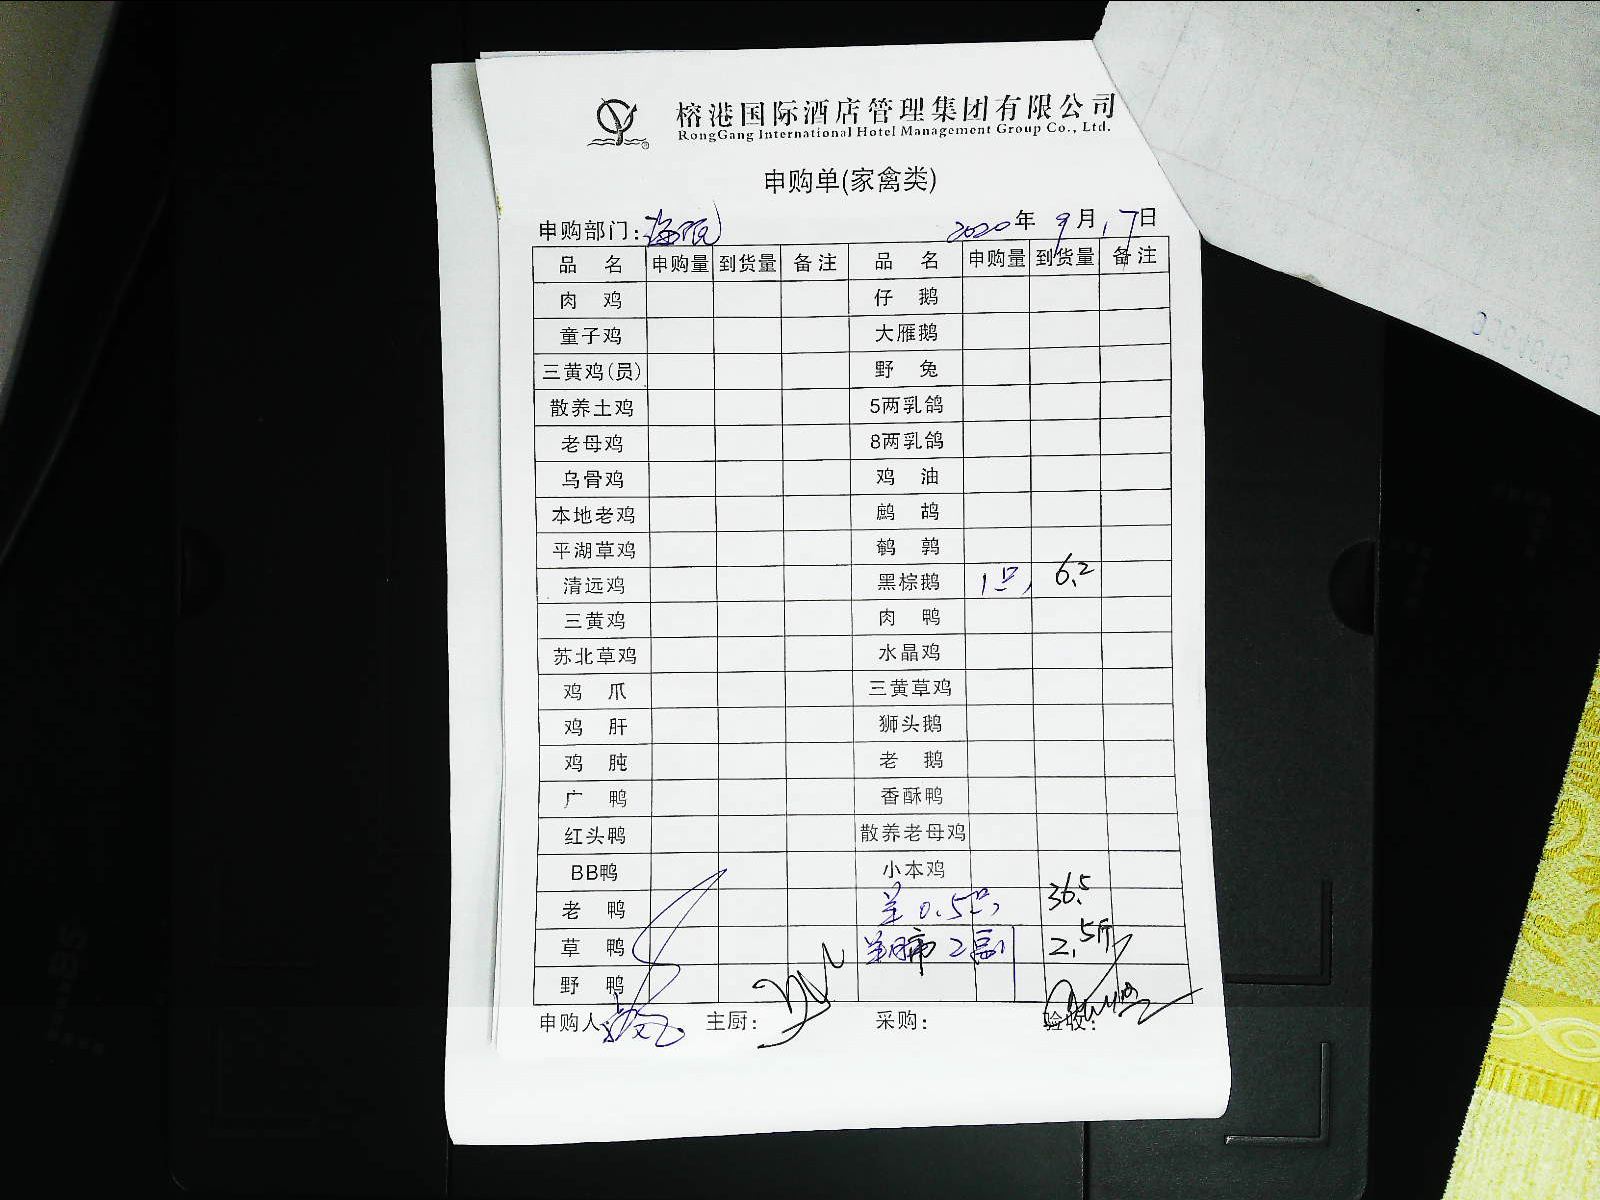 榕港国际酒店管理集团有限公司
RongGang International Hotel Management Group Co., Ltd.
申购单(家禽类)
申购部门: 2020年 9月 17日
品 名 申购量 到货量 备注 品 名 申购量 到货量 备注
肉 鸡 仔 鹅
童子鸡 大雁鹅
三黄鸡(员) 野 兔
散养土鸡 5两乳鸽
老母鸡 8两乳鸽
乌骨鸡 鸡 油
本地老鸡 鹧 鸪
平湖草鸡 鹌 鹑
清远鸡 黑棕鹅 1只 6.2
三黄鸡 肉 鸭
苏北草鸡 水晶鸡
鸡 爪 三黄草鸡
鸡 肝 狮头鹅
鸡 肫 老 鹅
广 鸭 香酥鸭
红头鸭 散养老母鸡
BB鸭 小本鸡
老 鸭 羊 0.5只 36.5
草 鸭 羊肺 2副 2.5斤
野 鸭
申购人: 主厨: 采购: 验收: